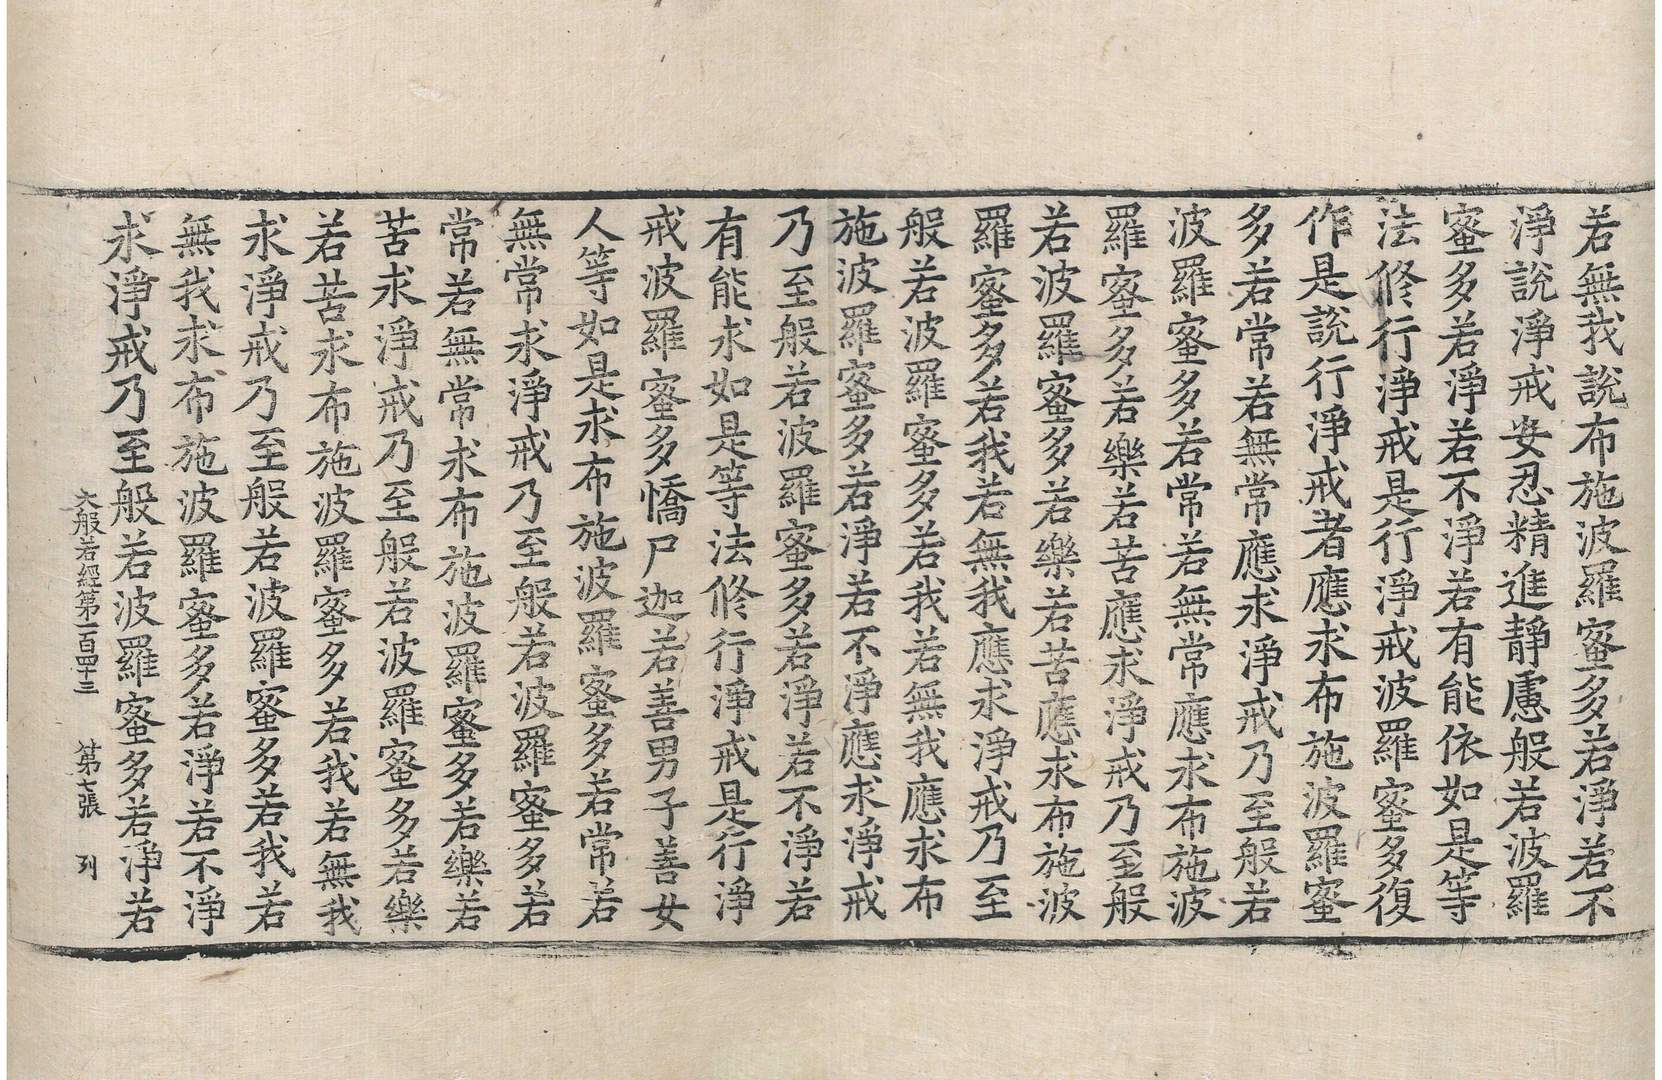 若無我說布施波羅蜜多若淨若不
淨說淨戒安忍精進靜慮般若波羅
蜜多若淨若不淨若有能依如是等
法修行淨戒是行淨戒波羅蜜多復
作是說行淨戒者應求布施波羅蜜
多若常若無常應求淨戒乃至般若
波羅蜜多若常若無常應求布施波
羅蜜多若樂若苦應求淨戒乃至般
若波羅蜜多若樂若苦應求布施波
羅蜜多若我若無我應求淨戒乃至
般若波羅蜜多若我若無我應求布
施波羅蜜多若淨若不淨應求淨戒
乃至般若波羅蜜多若淨若不淨若
有能求如是等法修行淨戒是行淨
戒波羅蜜多憍尸迦若善男子善女
人等如是求布施波羅蜜多若常若
無常求淨戒乃至般若波羅蜜多若
常若無常求布施波羅蜜多若樂若
苦求淨戒乃至般若波羅蜜多若樂
若苦求布施波羅蜜多若我若無我
求淨戒乃至般若波羅蜜多若我若
無我求布施波羅蜜多若淨若不淨
求淨戒乃至般若波羅蜜多若淨若
大般若經第一百四十三 第七張 列